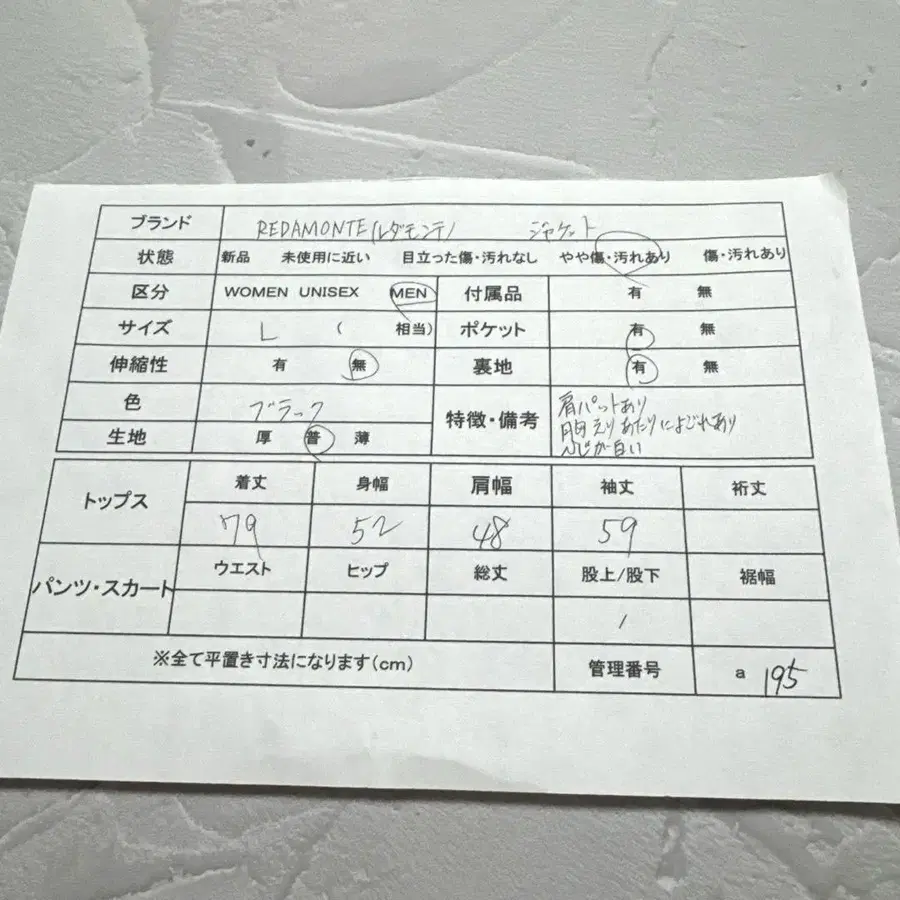 ブランド REDAMONTE(レダモンテ) ジャケット
状態 新品 未使用に近い 目立った傷・汚れなし やや傷・汚れあり 傷・汚れあり
区分 WOMEN UNISEX MEN 付属品 有 無
サイズ L ( 相当) ポケット 有 無
伸縮性 有 無 裏地 有 無
色 ブラック 特徴・備考 肩パットあり
胸えりあたりによごれあり
が白い
生地 厚 普 薄
トップス 着丈 身幅 肩幅 袖丈 裄丈
79 52 48 59
パンツ・スカート ウエスト ヒップ 総丈 股上/股下 裾幅
/
※全て平置き寸法になります(cm) 管理番号 a 195